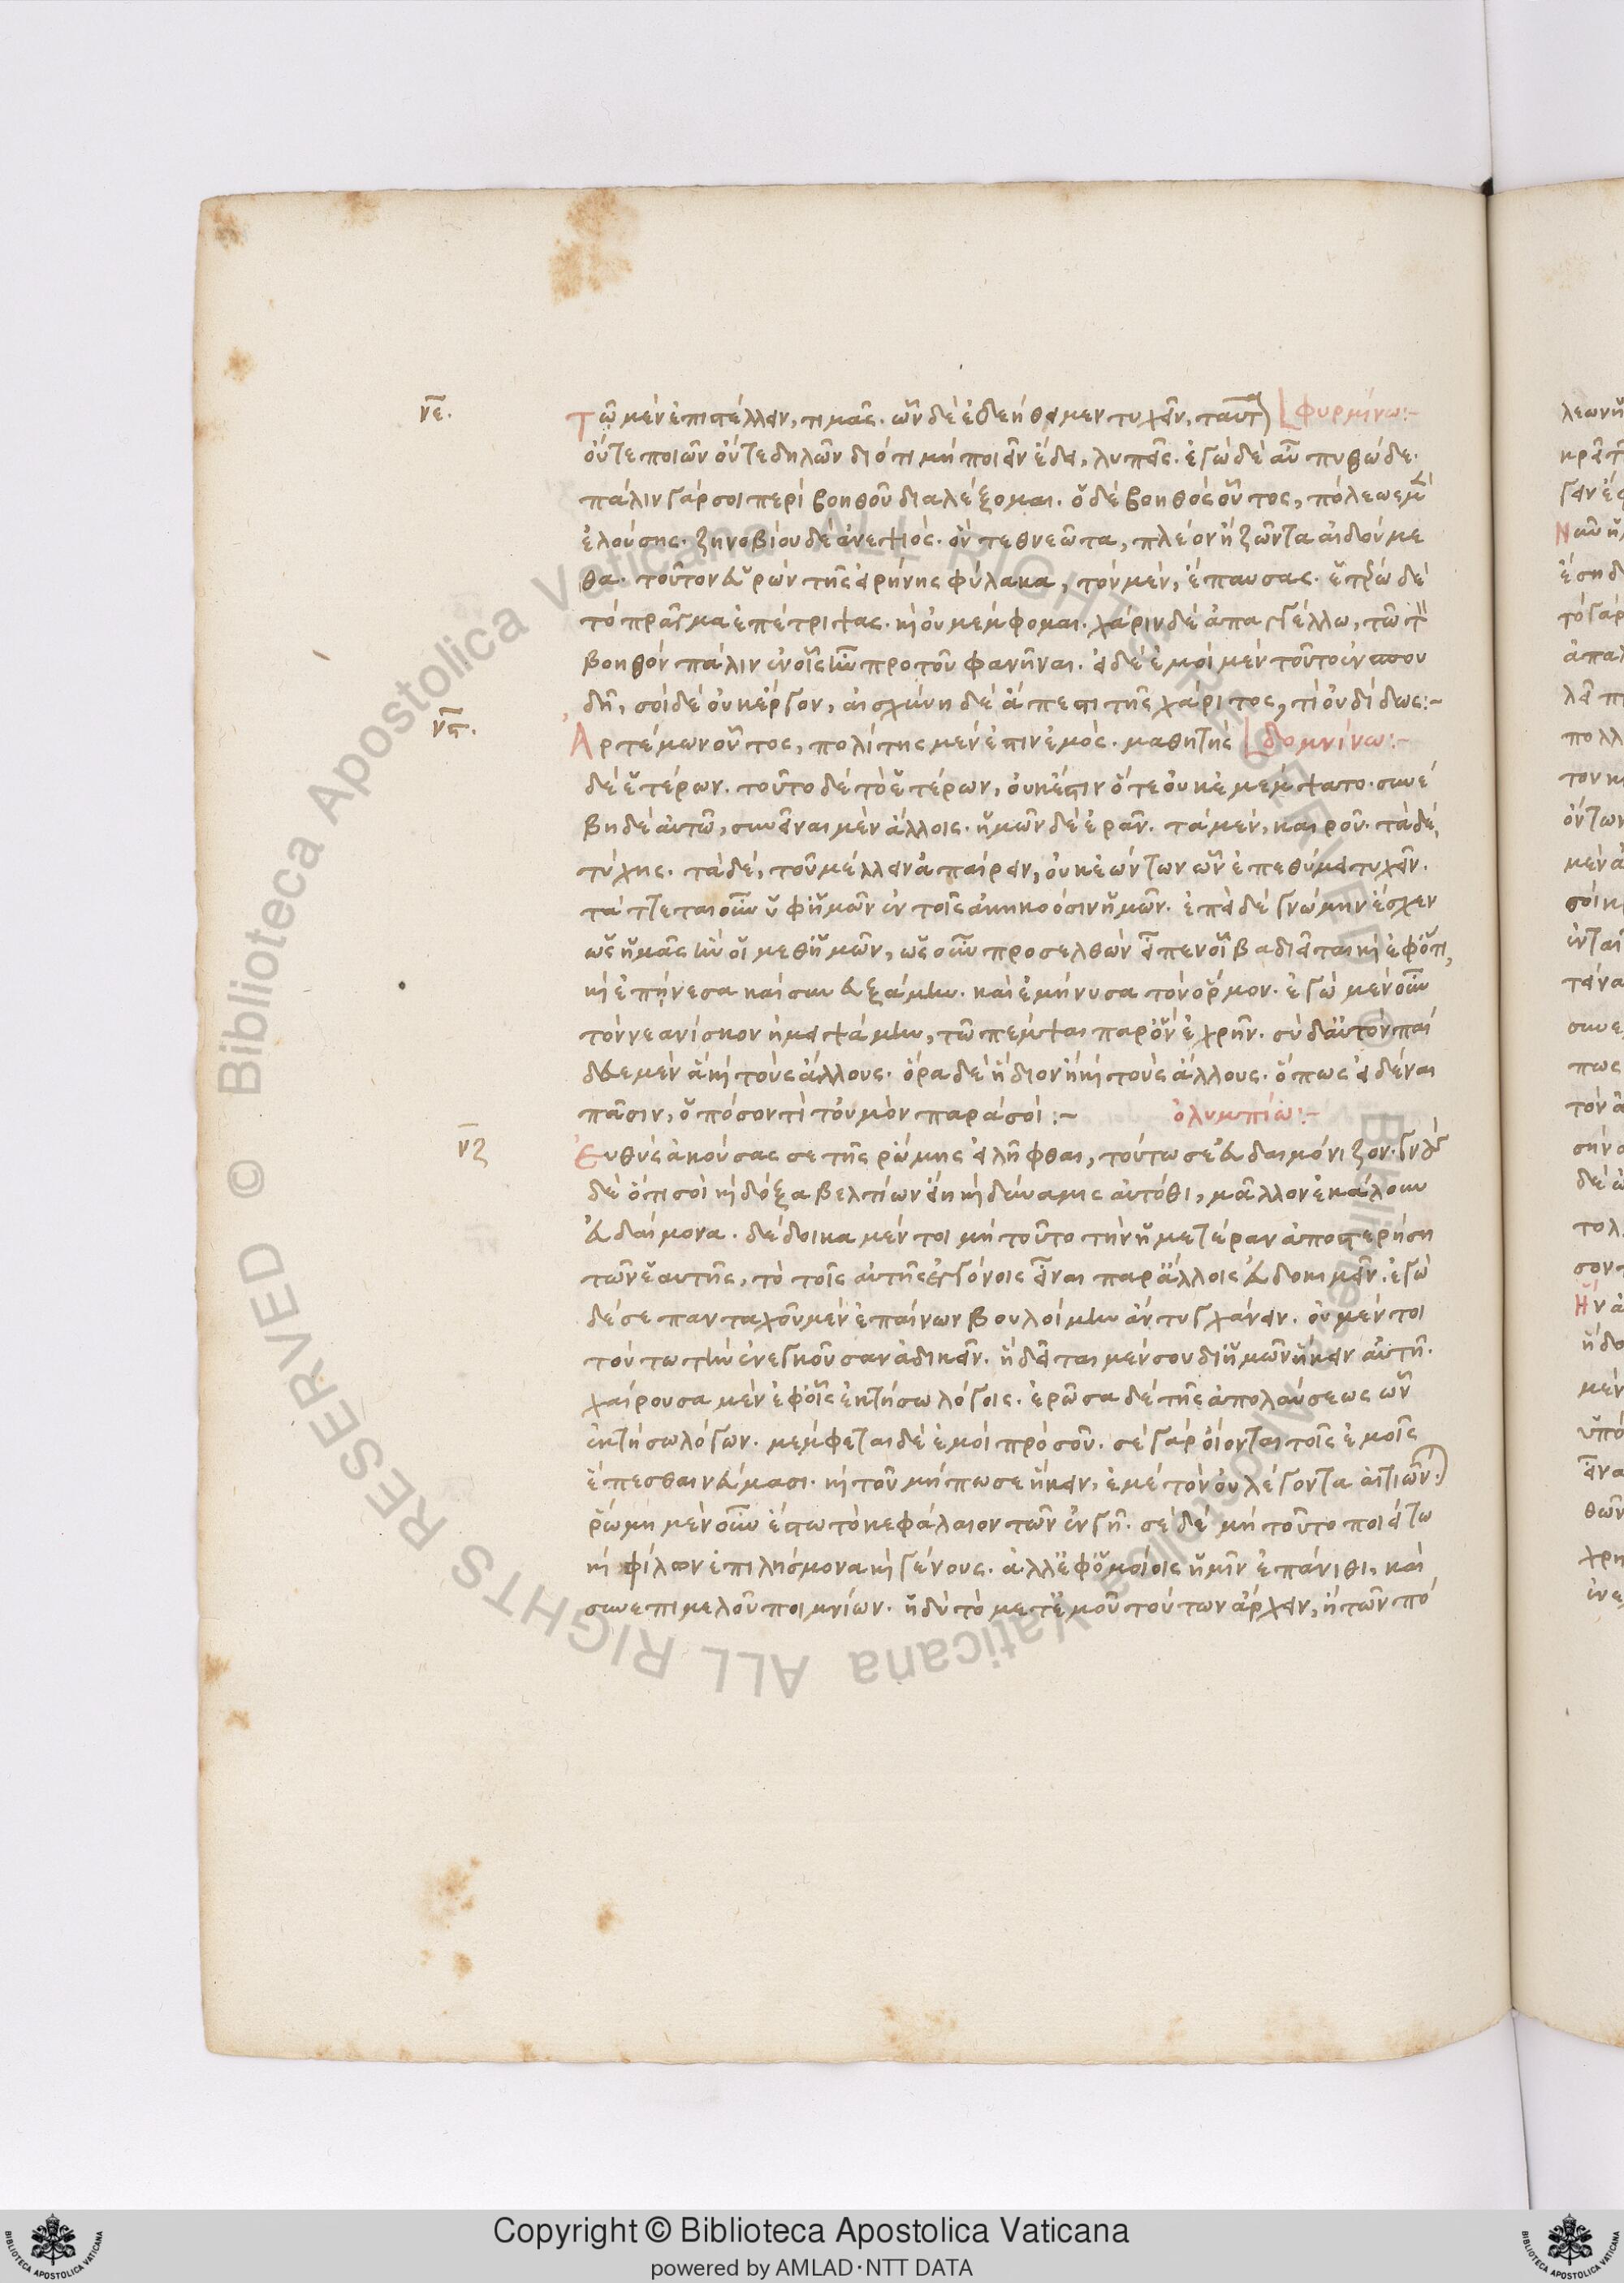 νε. Τῷ μὲν ἐπιστέλλειν, τιμᾷς. ὧν δὲ ἐδεήθημεν τυχεῖν, ταῦτα φυρμίνω:-
οὔτε ποιῶν οὔτε δηλῶν διότι μὴ ποιεῖν ἔδει, λυπεῖς. ἐγὼ δὲ αὖ πυθώδε.
πάλιν γάρ σοι περὶ βοηθοῦ διαλέξομαι. ὁ δὲ βοηθὸς οὗτος, πόλεως μὲν
ἐλούσης. ζηνοβίου δὲ ἀνεψιός. ὃν τεθνεῶτα, πλέον ἢ ζῶντα αἰδούμε
θα. τοῦτον εὑρὼν τῆς εἰρήνης φύλακα, τὸν μὲν, ἔπαυσας. ἑτέρω δὲ
τὸ πρᾶγμα ἐπέτρεψας. καὶ οὐ μέμφομαι. χάριν δὲ ἀπαγγέλλω, τῶ τὸν
βοηθὸν πάλιν ἐν οἷς ἦν πρὸ τοῦ φανῆναι. εἰ δὲ ἐμοὶ μὲν τοῦτο ἐν σπου
δῇ, σοὶ δὲ οὐκ ἔργον, αἰσχύνη δὲ ἄπεστι τῆς χάριτος, τί οὐ δίδως:-
νς. Ἀρτέμων οὗτος, πολίτης μέν ἐστιν ἐμός. μαθητὴς δομνίνω:-
δὲ ἑτέρων. τοῦτο δὲ τὸ ἑτέρων, οὐκ ἔστιν ὅτε οὐκ ἐμέμψατο. συνέ
βη δὲ αὐτῶ, συνεῖναι μὲν ἄλλοις. ἡμῶν δὲ ἐρᾶν. τὰ μὲν, καιροῦ. τὰ δέ,
τύχης. τὰ δέ, τοῦ μέλλειν ἀπαίρειν, οὐκ ἐώντων ὧν ἐπεθύμει τυχεῖν.
τάττεται οὖν ὑφ' ἡμῶν ἐν τοῖς ἀκηκοόσιν ἡμῶν. ἐπεὶ δὲ γνώμην ἔσχεν
ὡς ἡμᾶς ἦν οἳ μεθ' ἡμῶν, ὡς οὖν προσελθὼν εἶπεν οἷ βαδιεῖται καὶ ἐφ' ὅτι,
καὶ ἐπῄνεσα καὶ συνευξάμην. καὶ ἐμήνυσα τὸν ὅρμον. ἐγὼ μὲν οὖν
τὸν νεανίσκον ἠμειψάμην, τῶ πέμψαι παρ' ὃν ἐχρῆν. σὺ δ' αὐτὸν παί
δευε μὲν ᾗ καὶ τοὺς ἄλλους. ὅρα δὲ ἥδιον ἢ καὶ τοὺς ἄλλους. ὅπως εἰδέναι
πᾶσιν, ὁπόσον τι τοὐμὸν παρὰ σοί:- ὀλυμπίω:-
νζ Εὐθὺς ἀκούσας σε τῆς ρώμης εἰλῆφθαι, τούτω σε εὐδαιμόνιζον.
δὲ ὅτι σοὶ καὶ δόξα βελτίων εἴη καὶ δύναμις αὐτόθι, μᾶλλον ἐκάλουν
εὐδαίμονα. δέδοικα μέντοι μὴ τοῦτο τὴν ἡμετέραν ἀποστερήση
τῶν ἑαυτῆς, τὸ τοῖς αὐτῆς ἐγγόνοις εἶναι παρ' ἄλλοις εὐδοκιμεῖν. ἐγὼ
δέ σε πανταχοῦ μὲν ἐπαίνων βουλοίμην ἂν τυγχάνειν. οὐ μέντοι
τούτω τὴν ἐνεγκοῦσαν ἀδικεῖν. ἡ δεῖται μέν σου δι' ἡμῶν ἥκειν αὐτῇ.
χαίρουσα μὲν ἐφ' οἷς ἐκτήσω λόγοις. ἐρῶσα δὲ τῆς ἀπολαύσεως ὧν
ἐκτήσω λόγων. μέμφεται δὲ ἐμοὶ πρὸ σοῦ. σὲ γὰρ οἴονται τοῖς ἐμοῖς
ἕπεσθαι νεύμασι. καὶ τοῦ μήπω σε ἥκειν, ἐμὲ τὸν οὐ λέγοντα αἰτιῶν.
ῥώμη μὲν οὖν ἔστω τὸ κεφάλαιον τῶν ἐν γῇ. σὲ δὲ μὴ τοῦτο ποιείτω
καὶ φίλων ἐπιλήσμονα καὶ γένους. ἀλλ' ἐφ' ὁμοίοις ἡμῖν ἐπάνιθι, καὶ
συνεπιμελοῦ ποιμνίων. ἡδὺ τὸ μετ' ἐμοῦ τούτων ἄρχειν, ἢ τῶν πό
Copyright © Biblioteca Apostolica Vaticana
powered by AMLAD·NTT DATA
BIBLIOTECA APOSTOLICA VATICANA
© Biblioteca Apostolica Vaticana ALL RIGHTS RESERVED